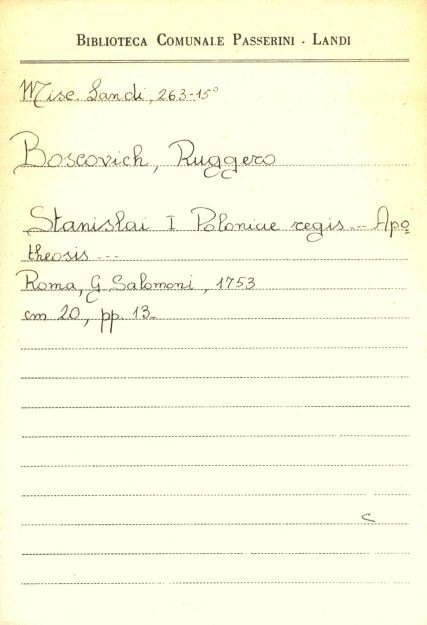 BIBLIOTECA COMUNALE PASSERINI - LANDI
Misc. Landi, 263-15°
Boscovich, Ruggero
Stanislai I Poloniae regis... Apo=
theosis ...
Roma, G Salomoni, 1753
cm 20, pp. 13-
c